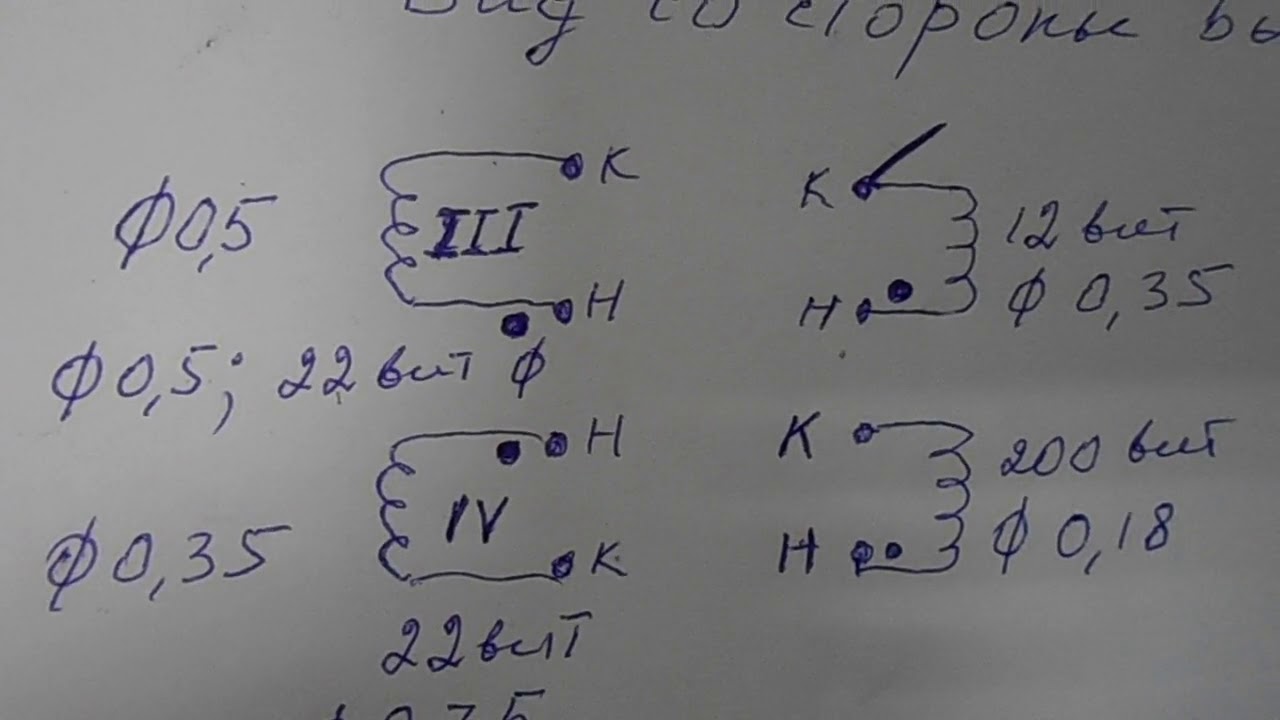 Вид со стороны вы
К
Ф0,5 III
Н
Ф0,5; 22 вит Ф
Н
Ф0,35 IV
К
22 вит
К 12 вит
Н Ф 0,35
К 200 вит
Н Ф 0,18